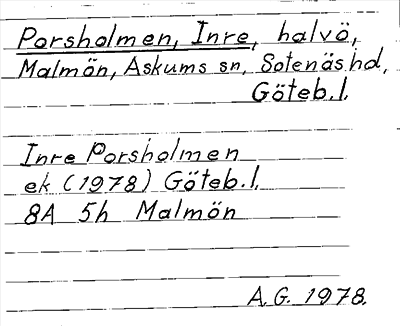 Porsholmen, Inre, halvö,
Malmön, Askums sn, Sotenäs hd,
Göteb.l.
Inre Porsholmen
ek (1978) Göteb.l.
8A 5h Malmön
A.G. 1978.